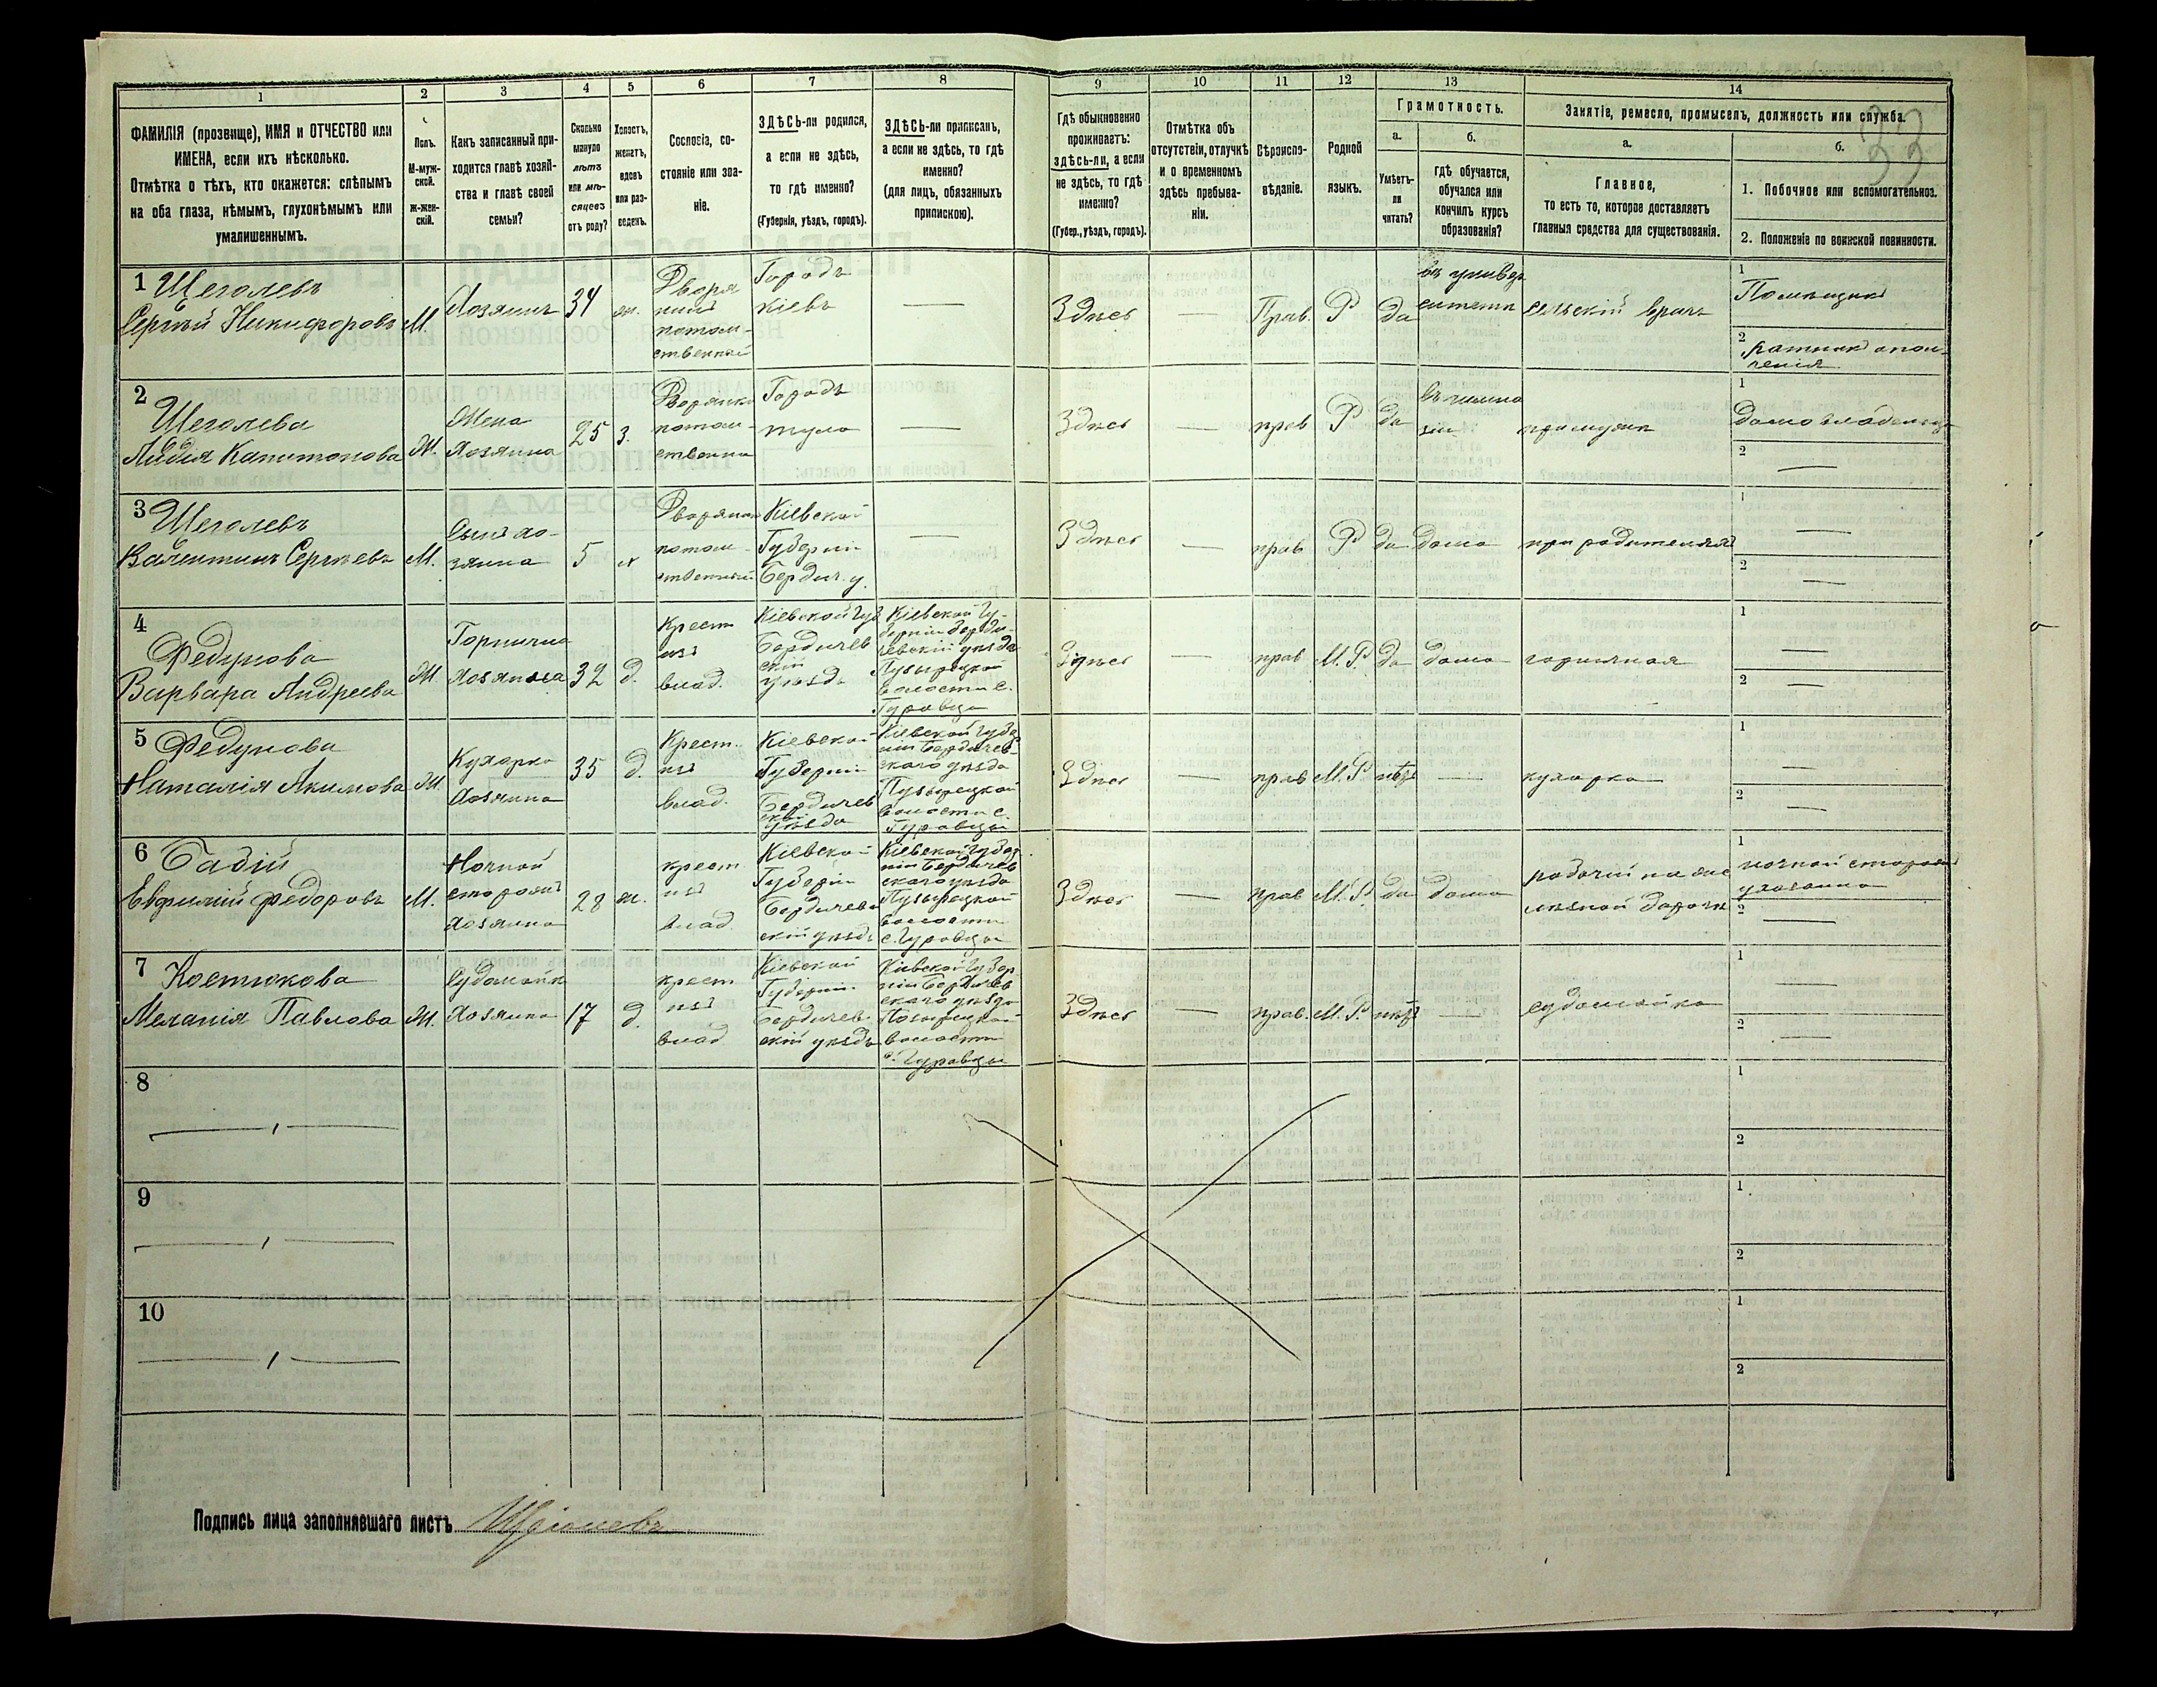 1
2
3
4
5
6
7
8
9
10
11
12
13
14
33
ФАМИЛІЯ (прозвище), ИМЯ и ОТЧЕСТВО или
ИМЕНА, если ихъ нѣсколько.
Отмѣтка о тѣхъ, кто окажется: слѣпымъ
на оба глаза, нѣмымъ, глухонѣмымъ или
умалишеннымъ.
Полъ.
М-муж-
ской.
Ж-жен-
скій.
Какъ записанный при-
ходится главѣ хозяй-
ства и главѣ своей
семьи?
Сколько
минуло
лѣтъ
или мѣ-
сяцевъ
отъ роду?
Холостъ,
женатъ,
вдовъ
или раз-
веденъ.
Сословіе, со-
стояніе или зва-
ніе.
ЗДѢСЬ-ли родился,
а если не здѣсь,
то гдѣ именно?
(Губернія, уѣздъ, городъ).
ЗДѢСЬ-ли приписанъ,
а если не здѣсь, то гдѣ
именно?
(для лицъ, обязанныхъ
припискою).
Гдѣ обыкновенно
проживаетъ:
здѣсь-ли, а если
не здѣсь, то гдѣ
именно?
(Губер., уѣздъ, городъ).
Отмѣтка объ
отсутствіи, отлучкѣ
и о временномъ
здѣсь пребыва-
ніи.
Вѣроиспо-
вѣданіе.
Родной
языкъ.
Грамотность.
а.
б.
Умѣетъ-
ли
читать?
Гдѣ обучается,
обучался или
кончилъ курсъ
образованія?
Занятіе, ремесло, промыселъ, должность или служба.
а.
б.
Главное,
то есть то, которое доставляетъ
главныя средства для существованія.
1. Побочное или вспомогательное.
2. Положеніе по воинской повинности.
1 Щеголевъ
Сергѣй Никифоровъ
М.
Хозяинъ
34
ж.
Дворя
нинъ
потом-
ственный
Городъ
Кіевъ
Здѣсь
Прав.
Р
да
въ универ
ситетѣ
сельскій врачъ
1
Помѣщикъ
2
ратникъ опол-
ченія
2
Щеголева
Лидія Капитонова
Ж.
Жена
хозяина
25
з.
Дворянка
потом-
ственна
Городъ
Тула
Здѣсь
прав
Р
да
въ гимна
зіи
при мужѣ
1
домовладѣлица
2
3 Щеголевъ
Валентинъ Сергѣевъ
М.
Сынъ хо-
зяина
5
х
Дворянинъ
потом-
ственный
Кіевской
Губерніи
Бердич. у.
Здѣсь
прав
Р
да
дома
при родителяхъ
1
2
4
Федунова
Варвара Андреева
Ж.
Горнична
хозяина
32
д.
Крест
изъ
влад.
Кіевской Губ
Бердичев
скій
уѣздъ
Кіевской Гу-
берніи Берди-
чевскій уѣзда
Пузырецкой
волости с.
Гуровцы
Здѣсь
прав
М. Р.
да
дома
горничная
1
2
5 Федунова
Наталія Акимова
Ж.
Кухарка
хозяина
35
д.
Крест.
изъ
влад.
Кіевской
Губерніи
Бердичев
ской
уѣзда
Кіевской Губер
ніи Бердичев-
скаго уѣзда
Пузырецкой
волости с.
Гуровцы
Здѣсь
прав
М. Р.
нѣтъ
кухарка
1
2
6 Бабій
Евфимій Федоровъ
М.
Ночной
сторожъ
хозяина
28
ж.
крест
изъ
влад.
Кіевской
Губерніи
Бердичев
скій уѣздъ
Кіевской Губер
ніи Бердичев
скаго уѣзда
Пузырецкой
волости
с. Гуровцы
Здѣсь
прав
М. Р.
да
дома
рабочій на же
лѣзной дорогѣ
1
ночной сторожъ
у хозяина
2
7 Костюкова
Меланія Павлова
Ж.
Судомойка
хозяина
17
д.
крест
изъ
влад
Кіевской
Губерніи
Бердичев
скій уѣздъ
Кіевской Губер
ніи Бердичев
скаго уѣзда
Пузырецкой
волости
с. Гуровцы
Здѣсь
прав.
М. Р.
нѣтъ
судомойка
1
2
8
1
2
9
1
2
10
1
2
Подпись лица заполнявшаго листъ Щеголевъ